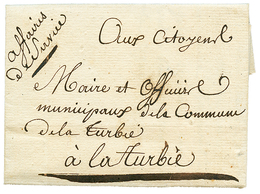 affaires
de Service
Aux Citoyens
Maire et officiers
municipaux de la Commune
de la turbie
à la turbie